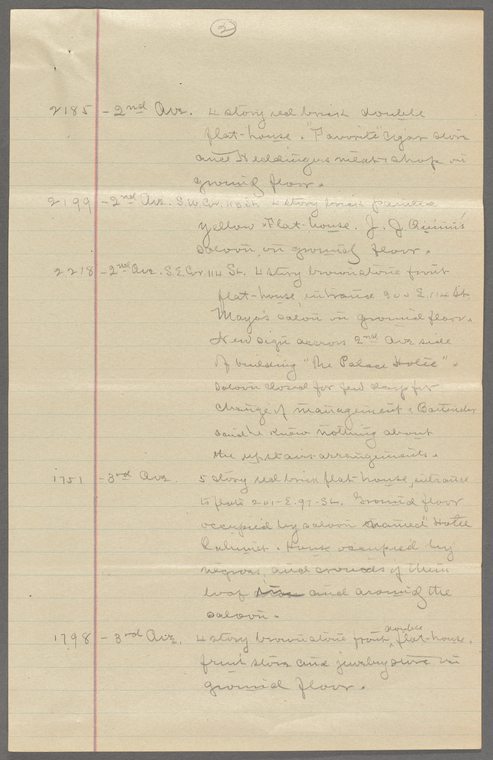 2
2185 - 2nd Ave. 4 story red brick double
flat-house. "Favorite" cigar store
and Weddingers meat shop in
ground floor.
2199 - 2nd Ave. S.W. Cor. 113 St. 4 story brick painted
yellow flat-house. J. J. Quinn's
saloon in ground floor.
2218 - 2nd Ave. S.E. Cor. 114 St. 4 story brownstone front
flat-house, entrance 300 E. 114 St.
Mayo's saloon in ground floor.
New sign across 2nd Ave side
of building "The Palace Hotel".
Saloon closed for few days for
change of management. Bartender
said he knew nothing about
the upstairs arrangements.
1751 - 3rd Ave. 5 story red brick flat-house, entrance
to flats 201-E. 97-St. Ground floor
occupied by saloon named "Hotel
House occupied by
negroes, and crowds of them
loaf and around the
saloon.
1798 - 3rd Ave. 4 story brownstone front double flat-house.
fruit store and jewelry store in
ground floor.